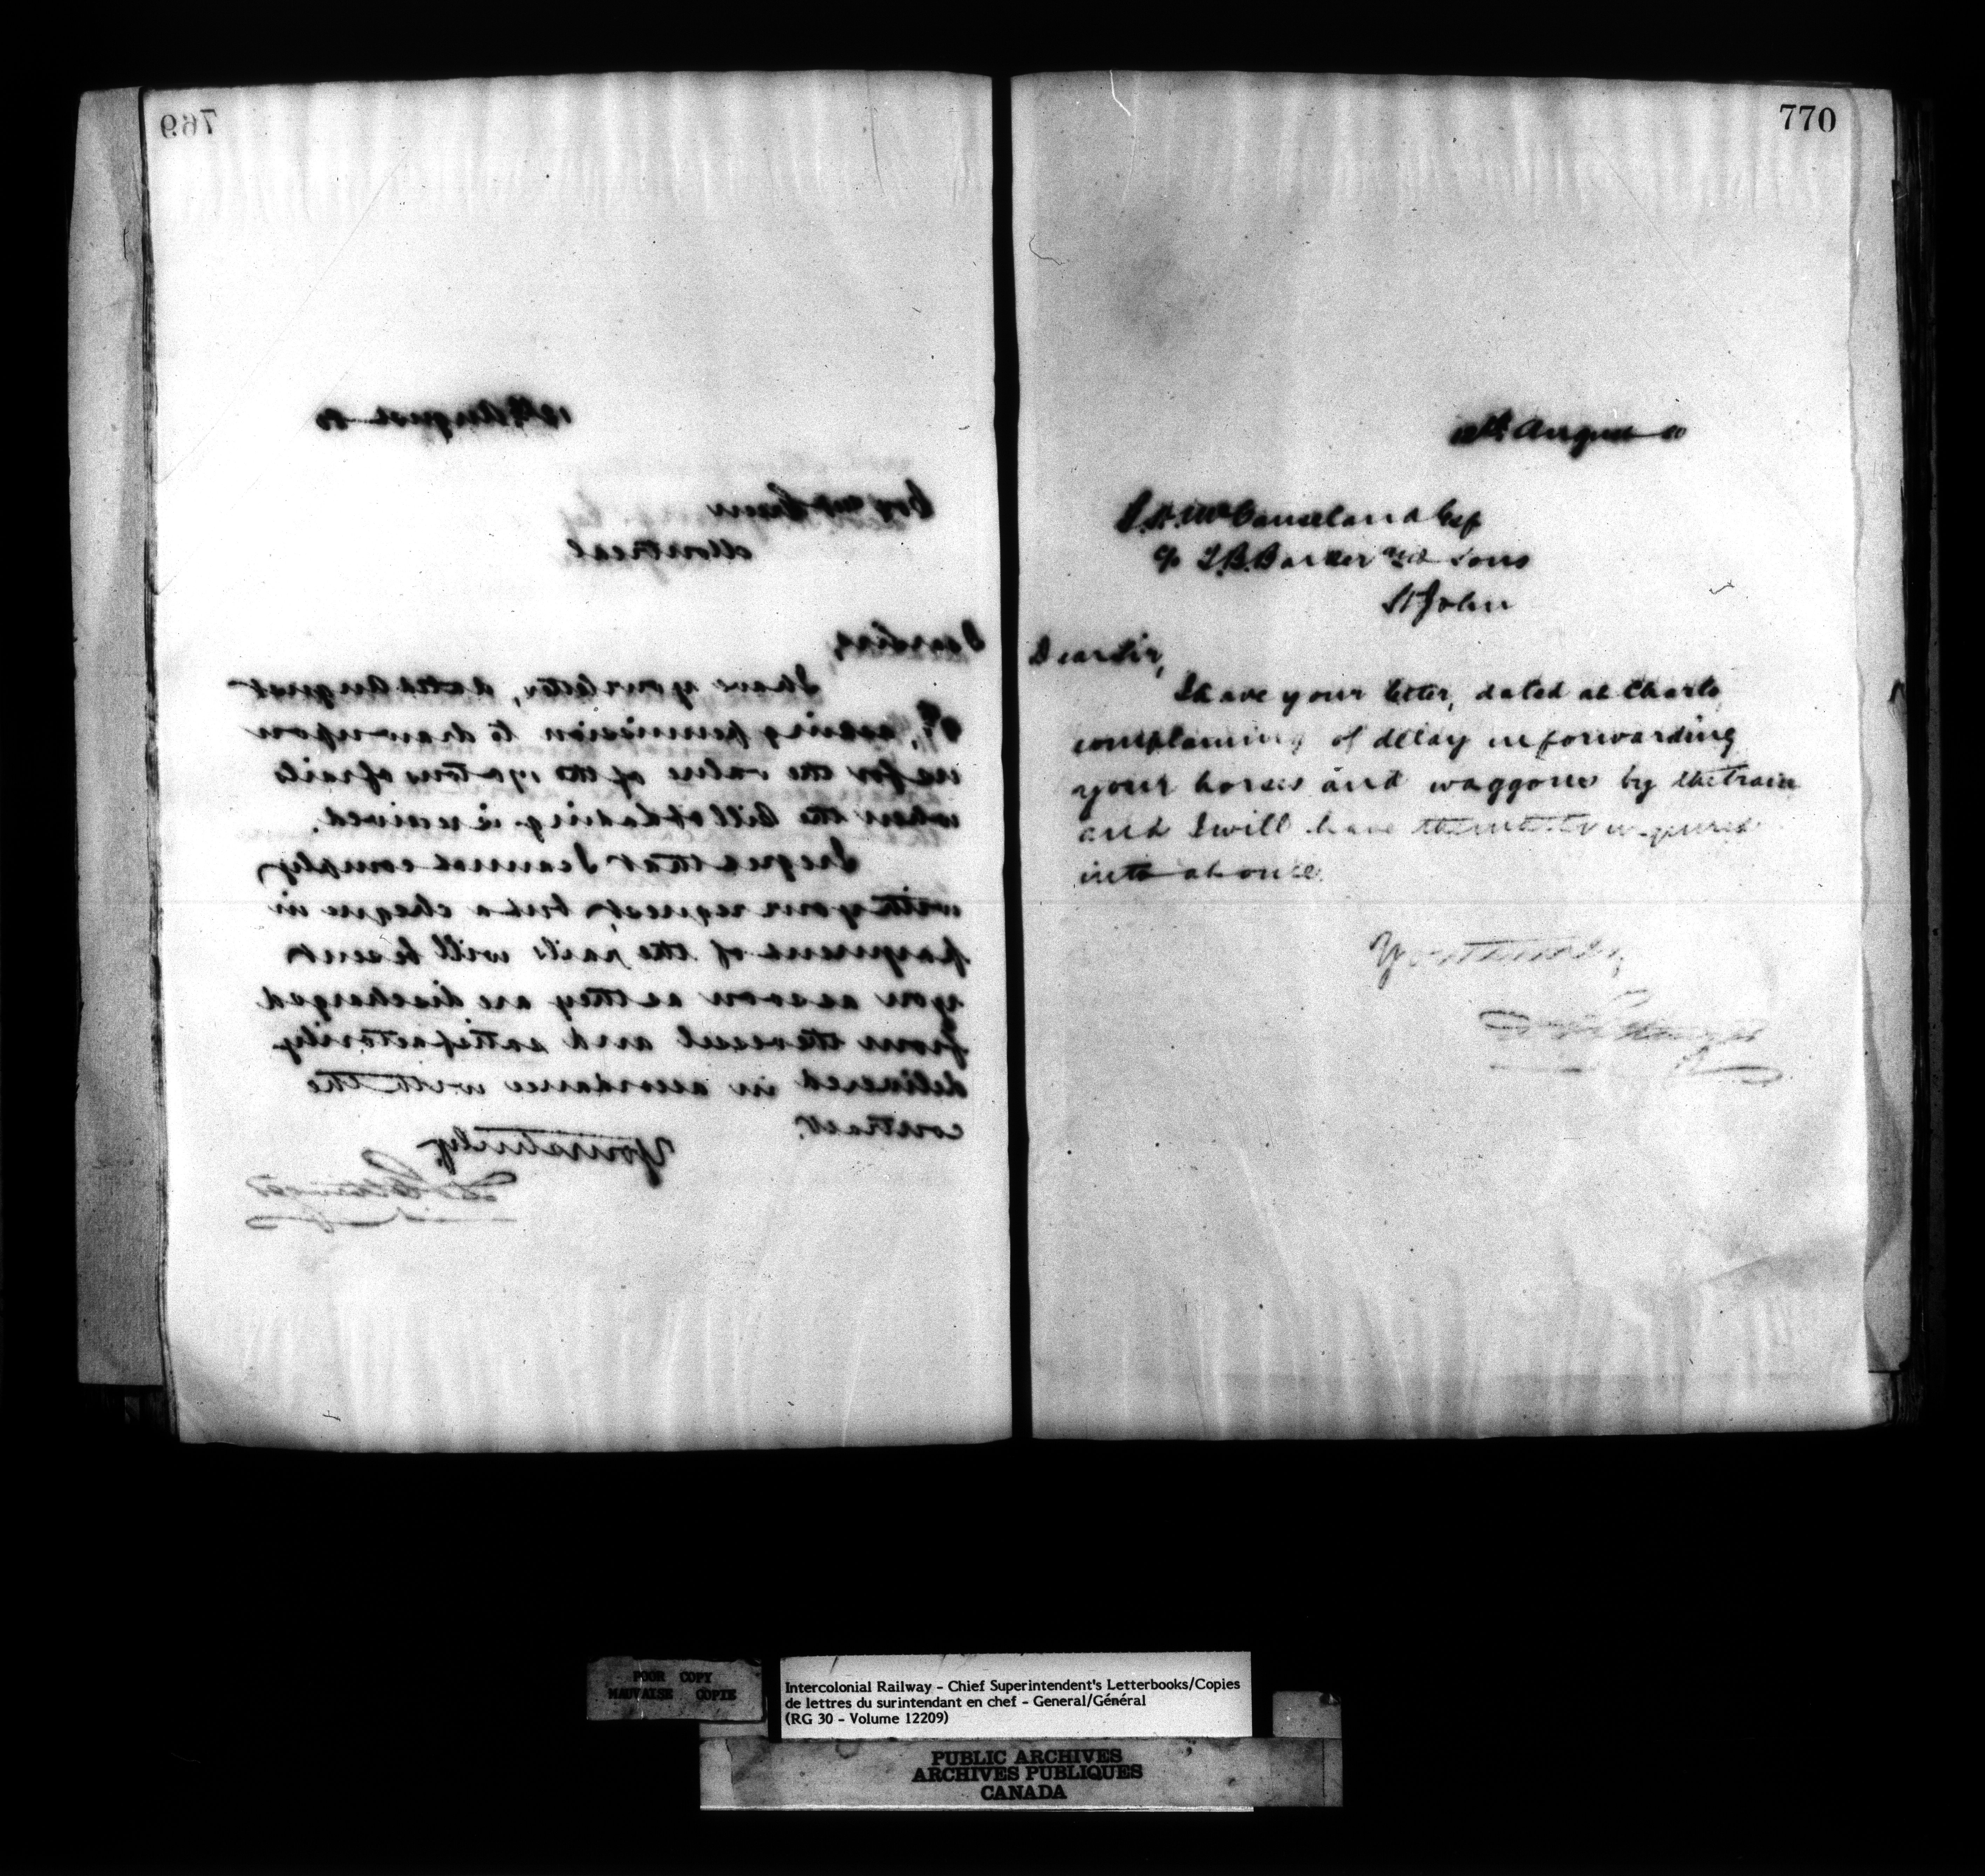 769
12th August 80
Cox and Green
Montreal
Dear Sirs,
I have your letter, dated August
9th, asking permission to draw upon
us for the value of the 170 tons of rails
when the bill of Lading is received.
I regret that I cannot comply
with your request, but a cheque in
payment of the rails will be sent
you as soon as they are discharged
from the vessel and satisfactorily
delivered in accordance with the
contract.
Yours truly
D Pottinger
770
12th August 80
Esq
c/o T.B. Barker and Sons
St John
Dear Sir,
I have your letter, dated at Charlo
complaining of delay in forwarding
your horses and waggons by the train
and I will have the matter inquired
into at once.
Yours truly
D Pottinger
POOR COPY
MAUVAISE COPIE
Intercolonial Railway - Chief Superintendent's Letterbooks/Copies
de lettres du surintendant en chef - General/Général
(RG 30 - Volume 12209)
PUBLIC ARCHIVES
ARCHIVES PUBLIQUES
CANADA